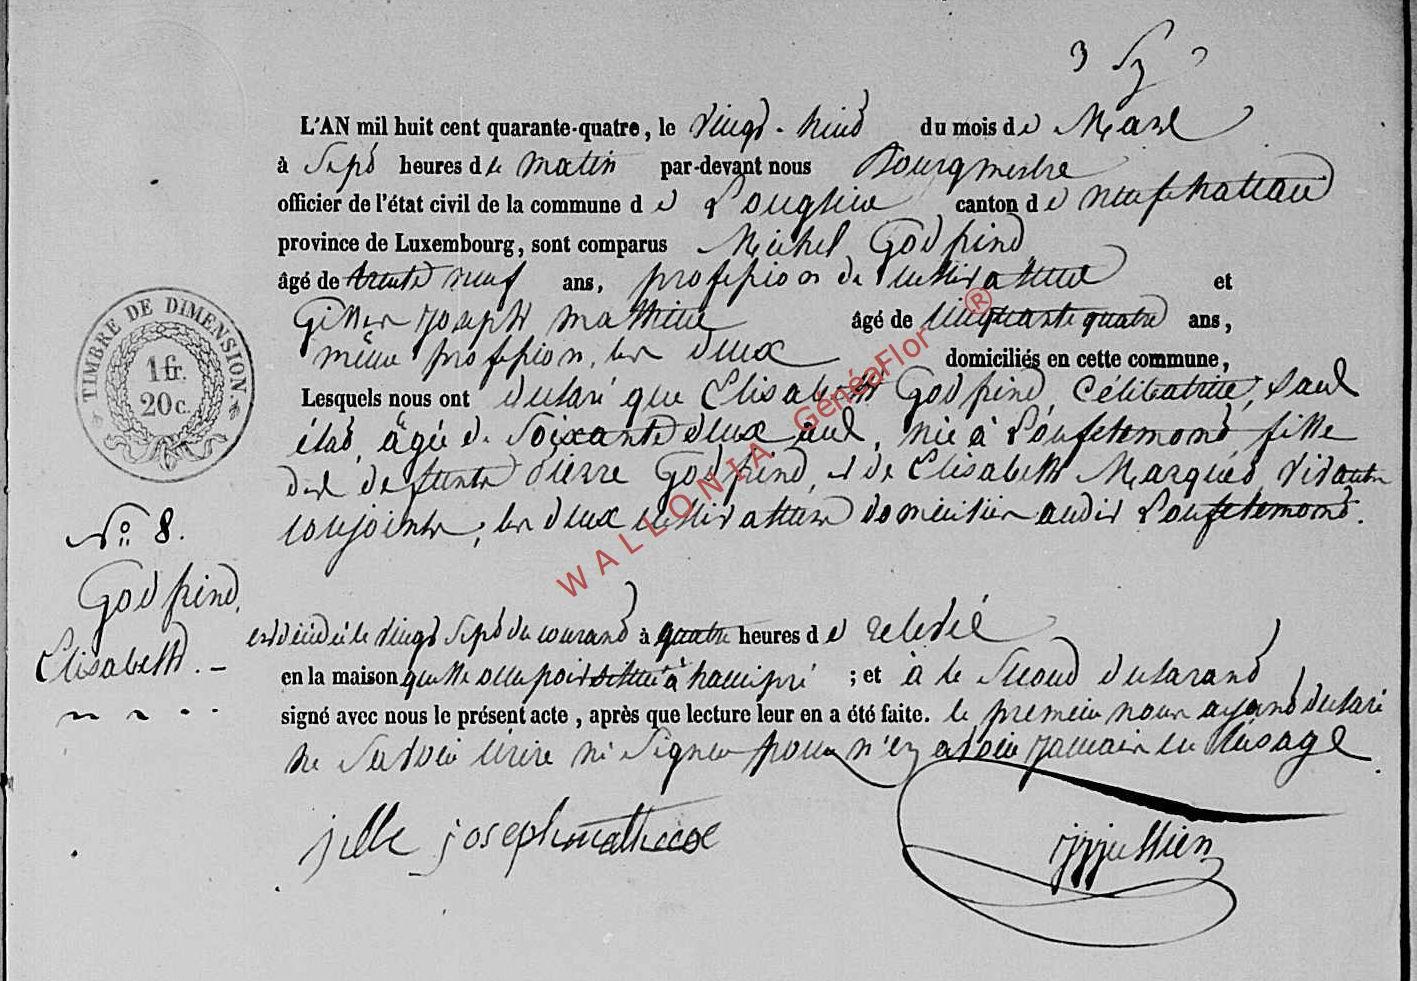 L'AN mil huit cent quarante-quatre, le vingt-huit du mois de Mars
à Sept heures de matin par-devant nous Bourgmestre
officier de l'état civil de la commune de Longlier canton de neufchateau
province de Luxembourg, sont comparus Michel Godfrind
âgé de trente neuf ans, profession de cultivateur et
Gilles Joseph mathieu âgé de cinquante quatre ans,
même profession, les deux domiciliés en cette commune,
Lesquels nous ont declaré que Elisabeth Godfrind, Célibataire, sans
état, âgée de Soixante deux ans, née à fille
des defunts Pierre Godfrind, et de Elisabeth Marquet, vivants
conjoints, les deux cultivateurs domiciliés audit
TIMBRE DE DIMENSION.
1 fr.
20 c.
N° 8.
Godfrind,
Elisabeth. -
est décédée le vingt Sept du courant à quatre heures de relevée
en la maison quelle occupoit située à hamipré ; et a le Second declarant
signé avec nous le présent acte, après que lecture leur en a été faite. le premier nous ayant declaré
ne Savoir écrire ni Signer pour n'en avoir Jamais eu l'usage.
jille joseph mathieu
WALLONIA GénéaFlor ®